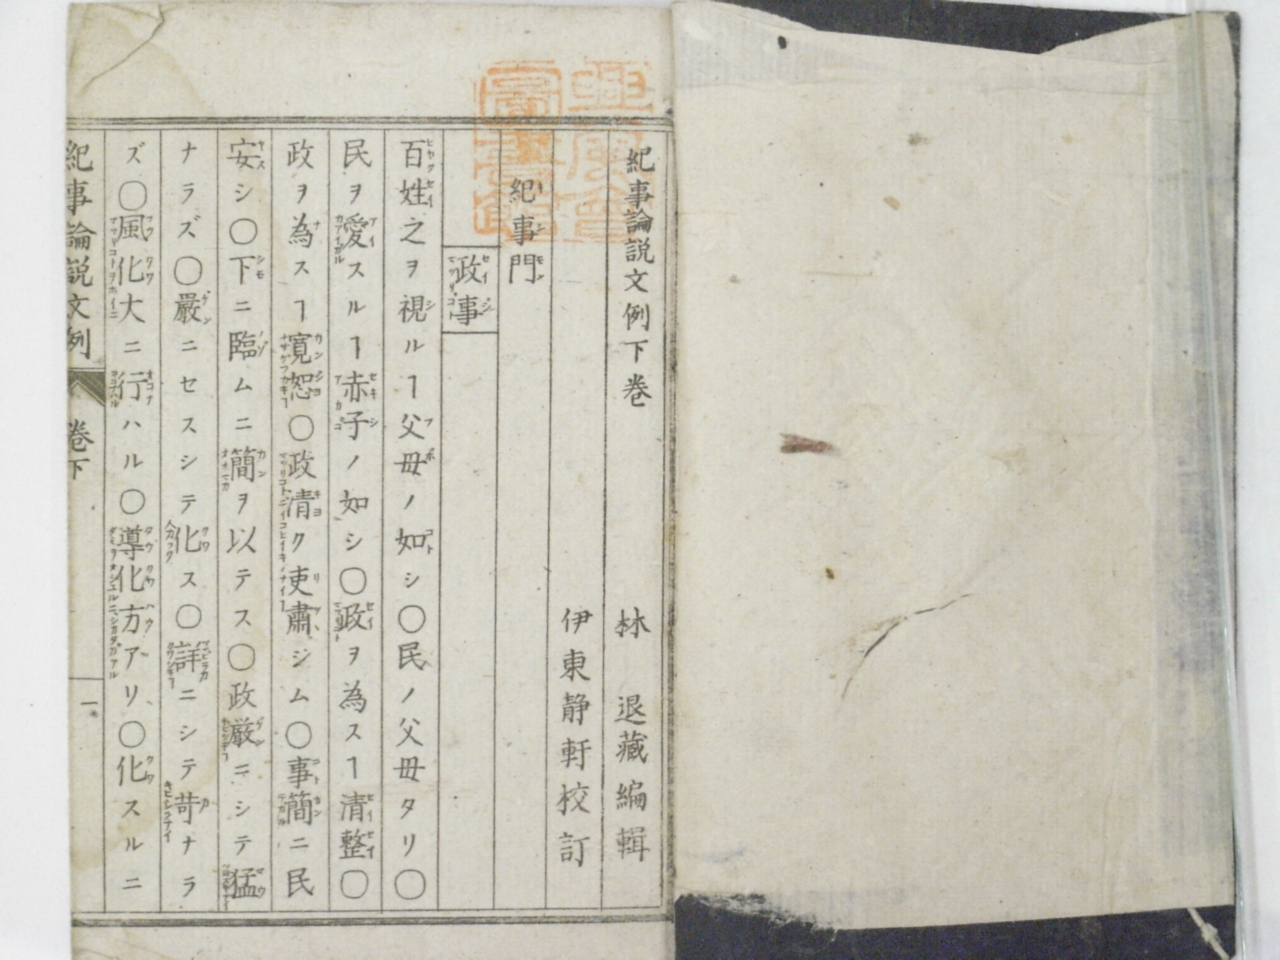 紀事論説文例下巻
林 退藏編輯
伊東静軒校訂
紀事門
政事
百姓之ヲ視ルヿ父母ノ如シ〇民ノ父母タリ〇
民ヲ愛スルヿ赤子ノ如シ〇政ヲ為スヿ清整〇
政ヲ為スヿ寛恕〇政清ク吏肅ジム〇事簡ニ民
安シ〇下ニ臨ムニ簡ヲ以テス〇政厳ニシテ猛
ナラズ〇嚴ニセスシテ化ス〇詳ニシテ苛ナラ
ズ〇風化大ニ行ハル〇導化方アリ、〇化スルニ
紀事論説文例 巻下 一